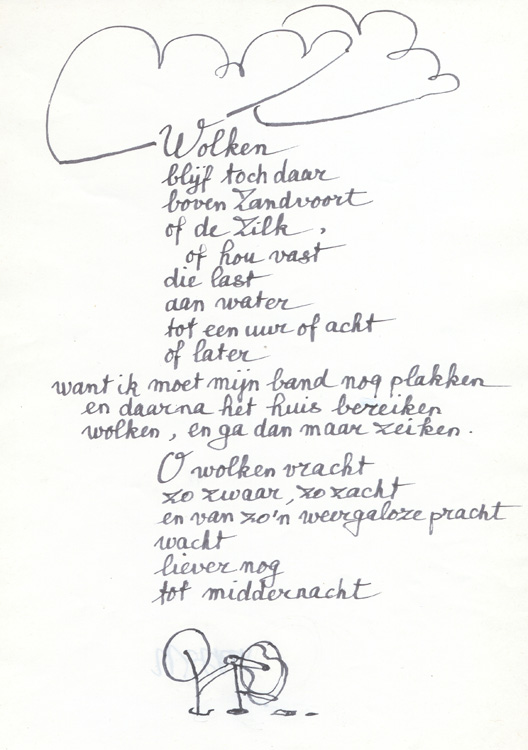 Wolken
blijf toch daar
boven Zandvoort
of de Zilk,
of hou vast
die last
aan water
tot een uur of acht
of later
want ik moet mijn band nog plakken
en daarna het huis bereiken
wolken, en ga dan maar zeiken.
O wolken vracht
zo zwaar, zo zacht
en van zo'n weergaloze pracht
wacht
liever nog
tot middernacht